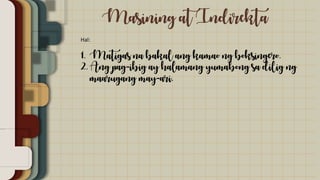 Masining at Indirekta
Hal:
1. Matigas na bakal ang kamao ng boksingero.
2. Ang pag-ibig ay halamang yumabong sa dilig ng
maarugang may-ari.